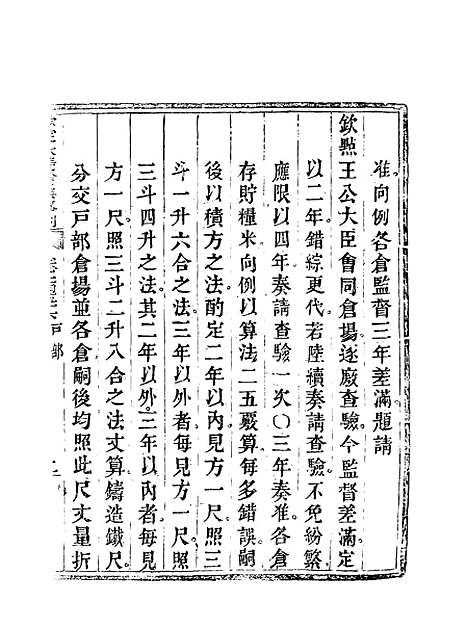 准向例各倉監督三年差滿題請
欽㸃王公大臣會同倉場逐廒查驗今監督差滿定
以二年錯綜更代若陸續奏請查驗不免紛繁
應限以四年奏請查驗一次〇三年奏准各倉
存貯糧米向例以算法二五覈算每多錯誤嗣
後以積方之法酌定二年以內見方一尺照三
斗一升六合之法三年以外者每見方一尺照
三斗四升之法其二年以外三年以內者每見
方一尺照三斗二升八合之法丈算鑄造鐵尺
分交戸部倉場並各倉嗣後均照此尺丈量折
戸部